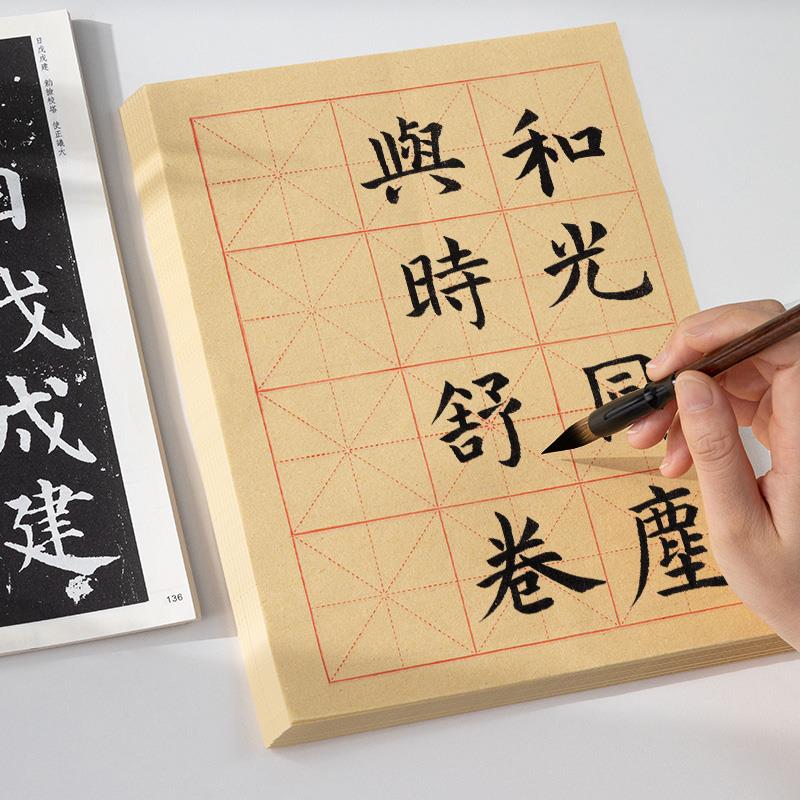 和光同塵
與時舒卷
日戊戌建 勅檢校塔 使正議大
戊戌建
136